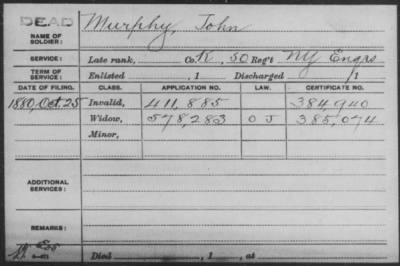 DEAD
NAME OF SOLDIER: Murphy, John
SERVICE: Late rank, Co. K, 50 Reg't NY Engrs
TERM OF SERVICE: Enlisted , 1 Discharged , 1
DATE OF FILING. CLASS. APPLICATION NO. LAW. CERTIFICATE NO.
1880, Oct. 25 Invalid, 411,885 384,940
Widow, 578,283 O J 385,074
Minor,
ADDITIONAL SERVICES:
REMARKS:
Died , 1 , at